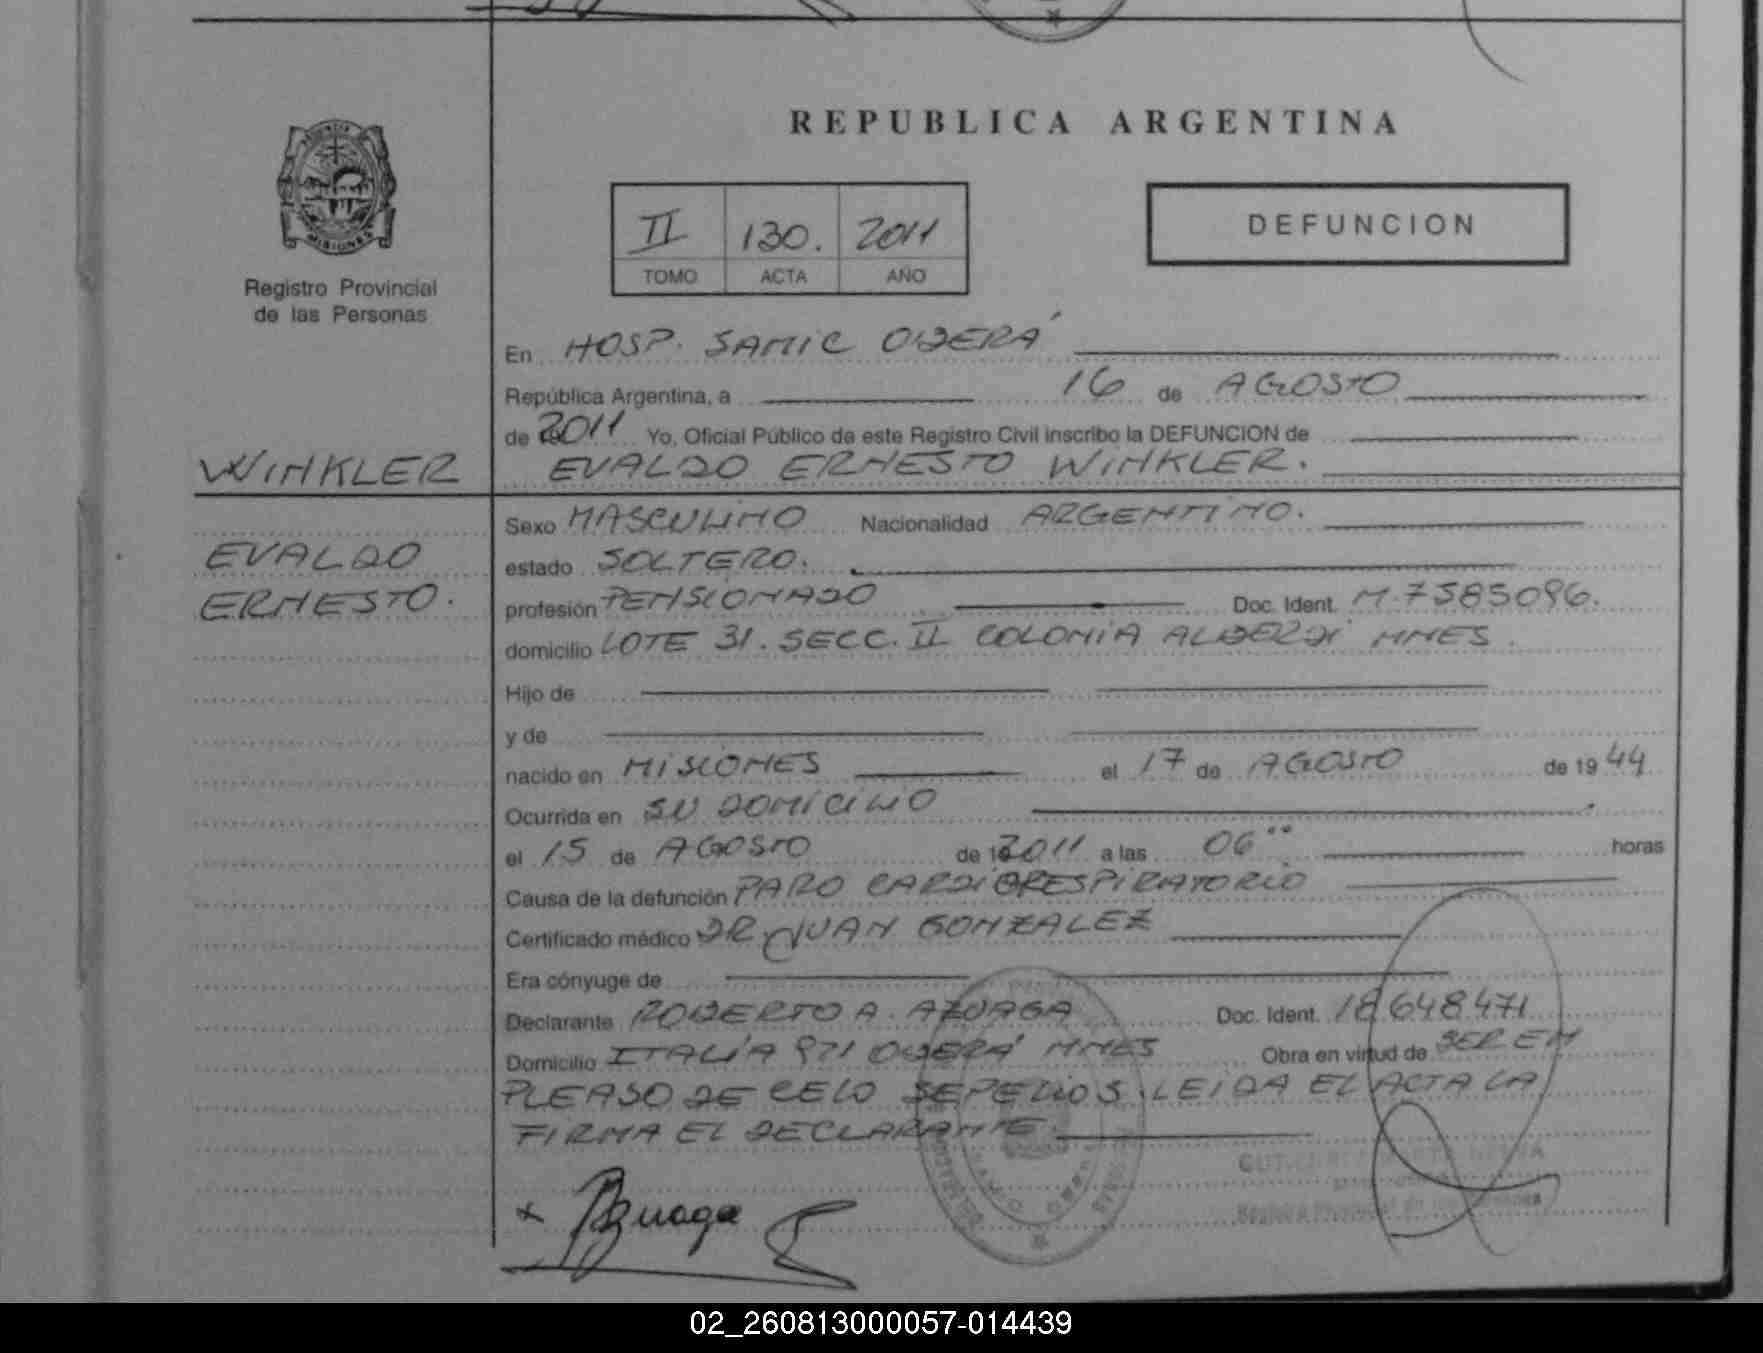 REPUBLICA ARGENTINA
MISIONES
Registro Provincial
de las Personas
II 130. 2011
TOMO ACTA AÑO
DEFUNCION
En HOSP. SAMIC OBERÁ
República Argentina, a 16 de AGOSTO
de 2011 Yo, Oficial Público de este Registro Civil inscribo la DEFUNCION de
WINKLER
EVALDO ERNESTO WINKLER.
EVALDO
ERNESTO.
Sexo MASCULINO Nacionalidad ARGENTINO.
estado SOLTERO.
profesión PENSIONADO Doc. Ident. M.7585096.
domicilio LOTE 31. SECC. II COLONIA ALBERDI MNES.
Hijo de
y de
nacido en MISIONES el 17 de AGOSTO de 1944
Ocurrida en SU DOMICILIO
el 15 de AGOSTO de 2011 a las 06°° horas
Causa de la defunción PARO CARDIORESPIRATORIO
Certificado médico DR. JUAN GONZALEZ
Era cónyuge de
Declarante ROBERTO A. AZUAGA Doc. Ident. 18.648.471
Domicilio ITALIA 971 OBERÁ MNES Obra en virtud de SER EM
PLEADO DE CELO SEPELIOS. LEIDA EL ACTA LA
FIRMA EL DECLARANTE.
x Azuaga
02_260813000057-014439